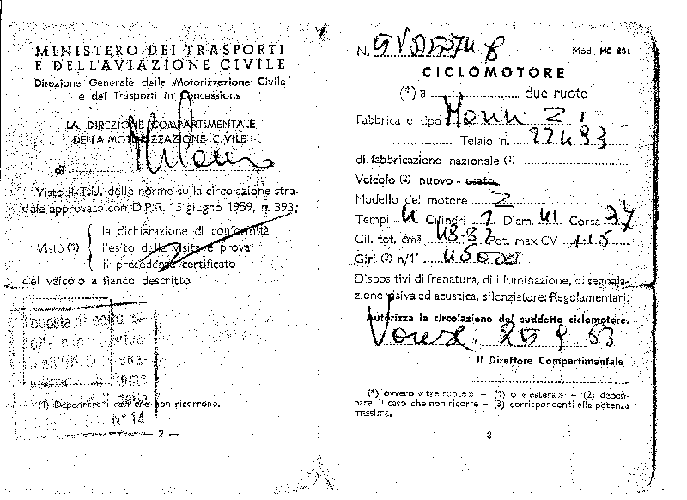 MINISTERO DEI TRASPORTI
E DELL'AVIAZIONE CIVILE
Direzione Generale della Motorizzazione Civile
e dei Trasporti in Concessione
LA DIREZIONE COMPARTIMENTALE
DELLA MOTORIZZAZIONE CIVILE
di Milano
Visto il T.U. delle norme sulla circolazione stra-
dale approvato con D.P.R. 15 giugno 1959, n. 393;
Visto (²)
la dichiarazione di conformità
l'esito della visita e prova
il precedente certificato
del veicolo a fianco descritto
(²) Depennare i casi che non ricorrono.
N° 14
— 2 —
N.
Mod. MC 851
CICLOMOTORE
(*) a due ruote
Fabbrica e tipo
Telaio n. 22493
di fabbricazione nazionale (¹)
Veicolo (²) nuovo - usato
Modello del motore Z
Tempi 4 Cilindri 1 Diam. 41 Corsa 37
Cil. tot. cm³ Pot. max CV 1.5
Giri (³) n/1' 4500
Dispositivi di frenatura, di illuminazione, di segnala-
zione visiva ed acustica, silenziatore: Regolamentari.
Autorizza la circolazione del suddetto ciclomotore.
Il Direttore Compartimentale
(*) ovvero a tre ruote — (1) o « estera » — (2) depen-
nare il caso che non ricorre — (3) corrispondenti alla potenza
massima.
3